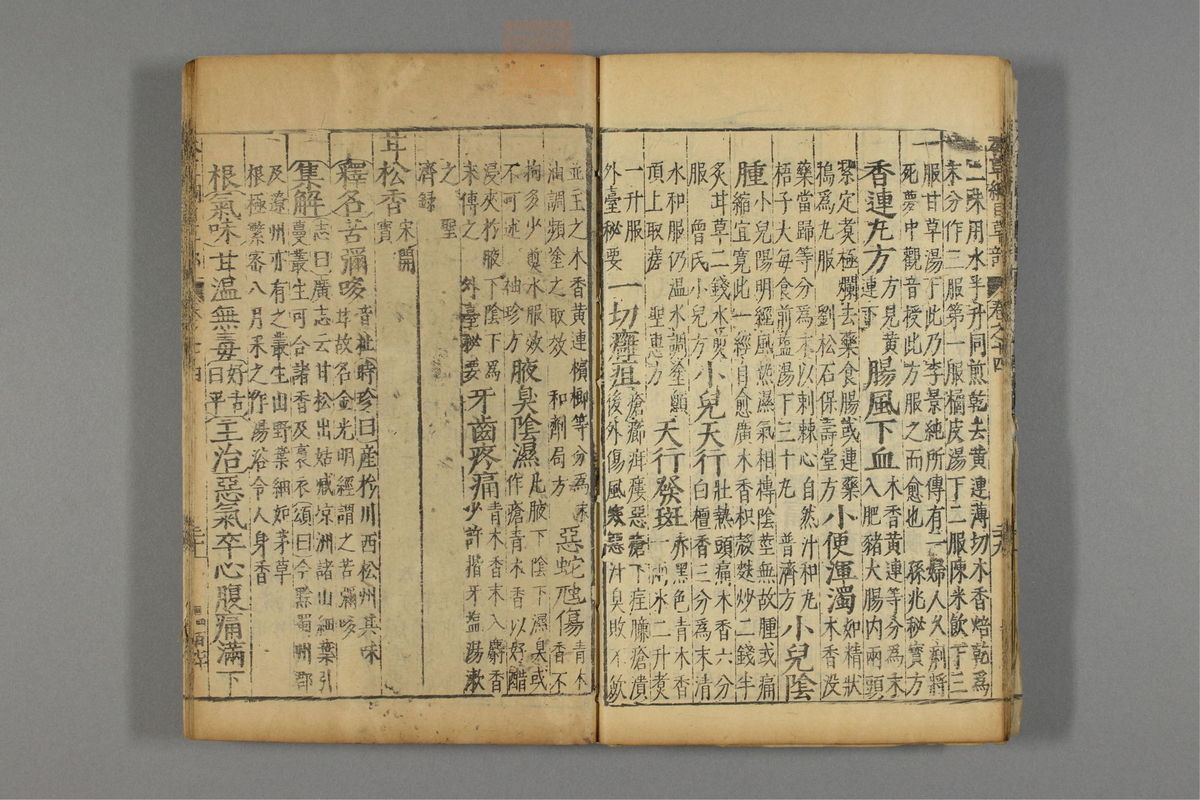 本草綱目草部 卷之十四 二十九
二味用水半升同煎乾去黃連薄切木香焙乾爲
末分作三服第一服橘皮湯下二服陳米飲下三
服甘草湯下此乃李景純所傳有一婦人久痢將
死夢中觀音授此方服之而愈也 孫兆秘寶方
香連丸方 方見黃連下 腸風下血 木香黃連等分爲末入肥豬大腸內兩頭
紮定煮極爛去藥食腸或連藥
搗爲丸服 劉松石保壽堂方 小便渾濁 如精狀木香沒
藥當歸等分爲末以刺棘心自然汁和丸
梧子大每食前鹽湯下三十丸 普濟方 小兒陰
腫 小兒陽明經風熱濕氣相摶陰莖無故腫或痛
縮宜寬此一經自愈廣木香枳殼麩炒二錢半
炙甘草二錢水煎服 曾氏小兒方 小兒天行 壯熱頭痛木香六分白檀香三分爲末清
水和服仍溫水調塗顖
頂上取瘥 聖惠方 天行發斑 赤黑色青木香一兩水二升煮
一升服
外臺秘要 一切癰疽 瘡癤疳瘻惡瘡下疰臁瘡潰後外傷風寒惡汁臭敗不斂
並主之木香黃連檳榔等分爲末
油調頻塗之取效 和劑局方 惡蛇虺傷 青木香不
拘多少煎水服效
不可述 袖珍方 腋臭陰濕 凡腋下陰下濕臭或作瘡青木香以好醋
浸夾於腋下陰下爲
末傅之 外臺秘要 牙齒疼痛 青木香末入麝香少許揩牙鹽湯漱
之 聖濟錄
甘松香 宋開寶
釋名 苦彌哆 音扯時珍曰產於川西松州其味甘故名金光明經謂之苦彌哆
集解 志曰廣志云甘松出姑臧凉州諸山細葉引蔓叢生可合諸香及裛衣頌曰今黔蜀州郡
及遼州亦有之叢生山野葉細如茅草
根極繁密八月采之作湯浴令人身香
根氣味 甘溫無毒 好古曰平 主治 惡氣卒心腹痛滿下